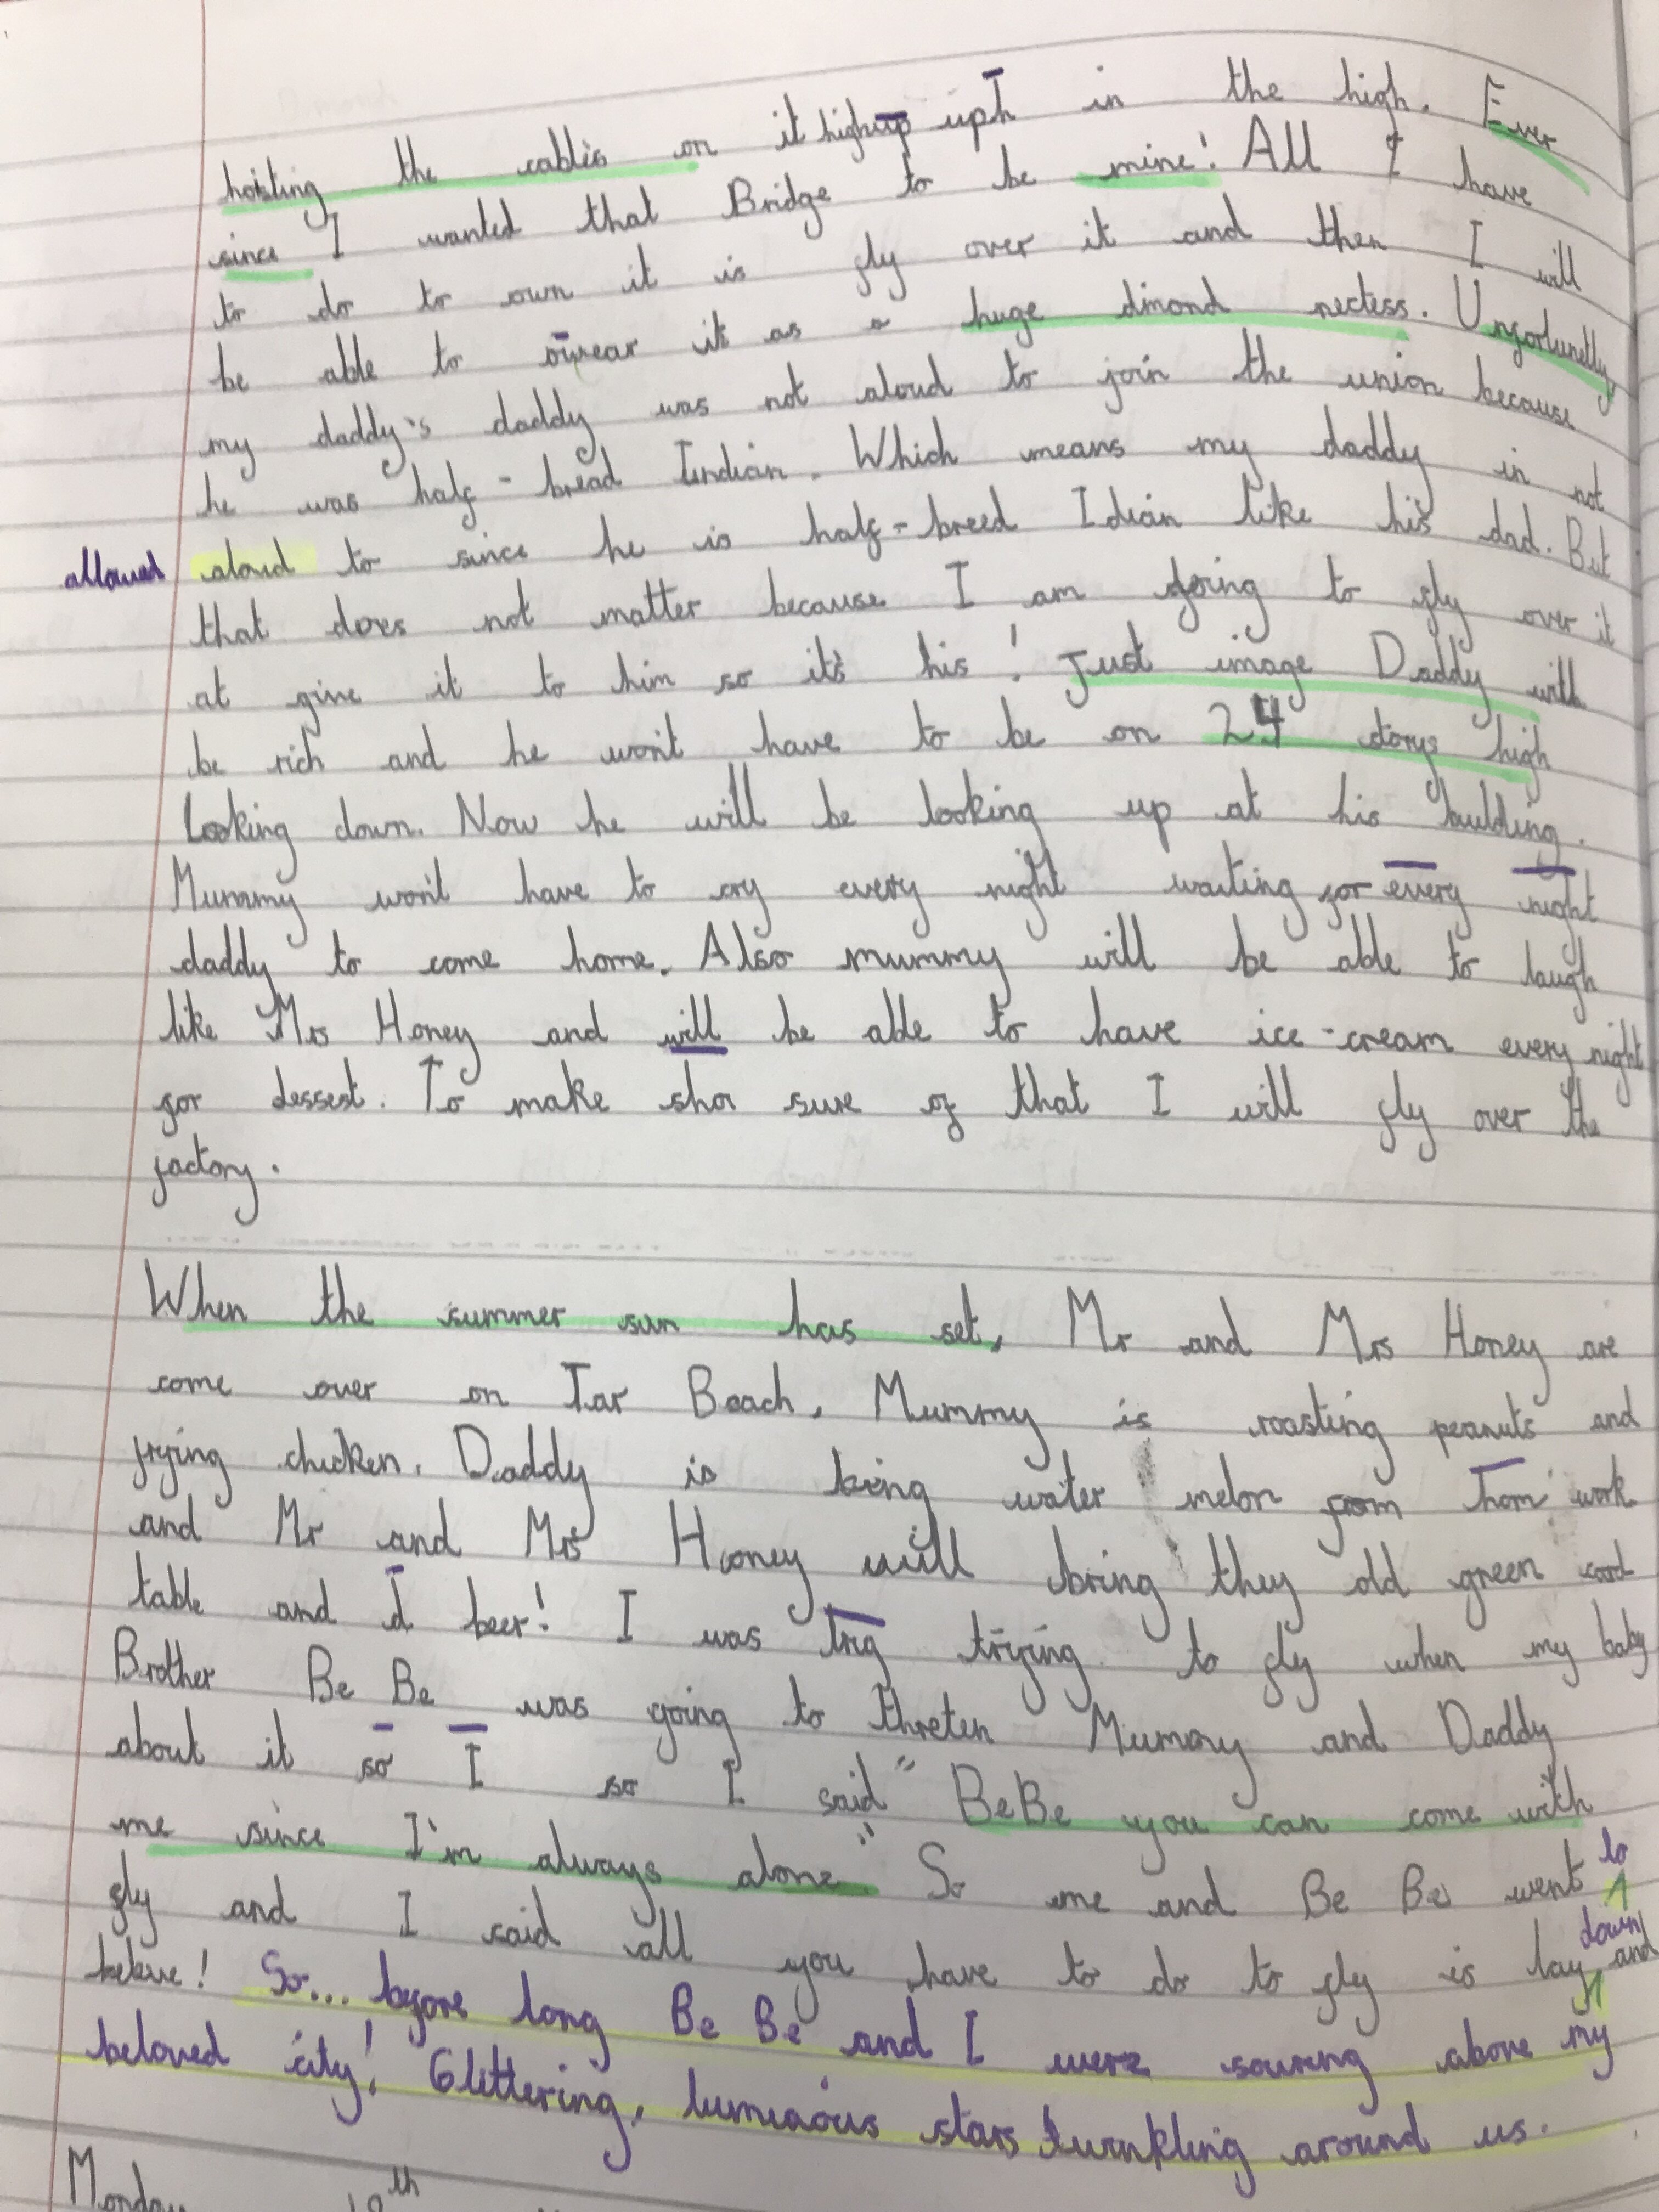 hoisting the cables on it highup up in the high. Ever
since I wanted that Bridge to be mine! All I have
to do to own it is fly over it and then I will
be able to wear it as a huge dimond necless. Unfortunetlly
my daddy's daddy was not aloud to join the union because
he was half-bread Iindian. Which means my daddy in not
allowed aloud to since he is half-breed Idian like his dad. But
that does not matter because I am going to fly over it
at give it to him so it's his! Just image Daddy will
be rich and he won't have to be on 24 storys high
Looking down. Now he will be looking up at his building.
Mummy won't have to cry every night waiting for every night
daddy to come home. Also mummy will be able to laugh
like Mrs Honey and will be able to have ice-cream every night
for dessest. To make sho sure of that I will fly over the
factory.
When the summer sun has set, Mr and Mrs Honey are
come over on Tar Beach. Mummy is roasting peanuts and
frying chicken. Daddy is bring water melon from hom work
and Mr and Mrs Honey will bring they old green card
table and d beer! I was trig trying to fly when my baby
Brother Be Be was going to threten Mummy and Daddy
about it so I so I said "BeBe you can come with
me since I'm always alone." So me and Be Be went to
fly and I said all you have to do to fly is lay down and
beleve! So... before long Be Be and I were souring above my
beloved city! Glittering, lumiaous stars twinkling around us.
Monday 19th